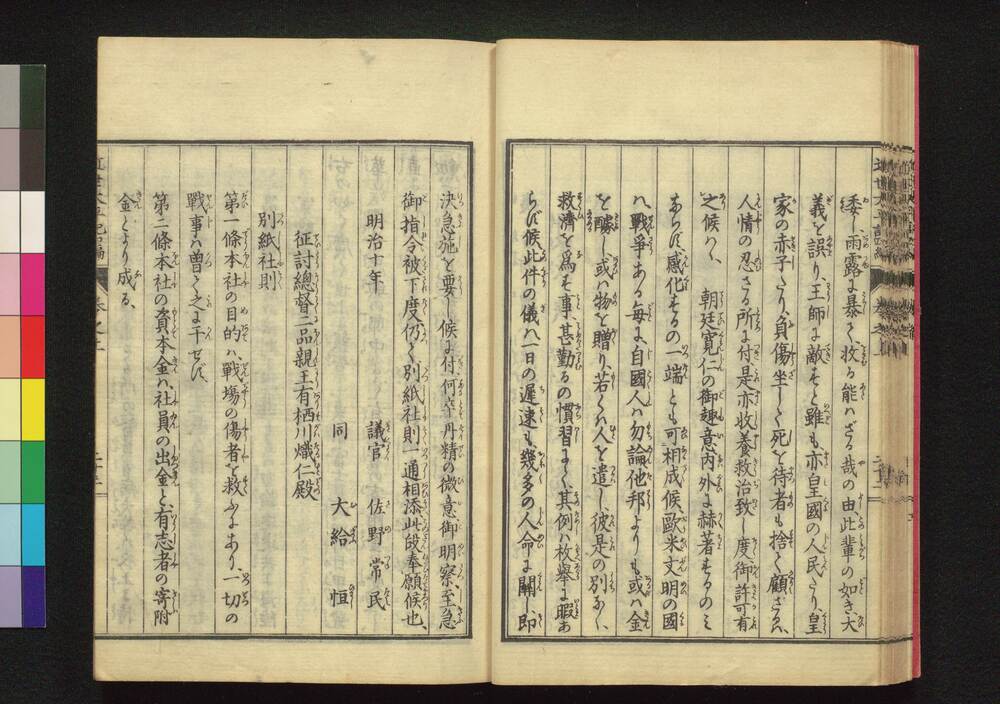 委し雨露に暴さ、救る能ハざる哉の由、此輩の如き、大
義を誤り、王師に敵すと雖も、亦皇國の人民たり、皇
家の赤子たり、負傷坐して死を待者も捨て顧ざるハ、
人情の忍さる所に付、是亦收養救治致し度、御許可有
之候ハヽ、朝廷寛仁の御趣意、内外に赫著するのミ
ならず、感化するの一端とも可相成候、歐米文明の國
ハ、戰爭ある毎に、自國人ハ勿論、他邦よりも、或ハ金
を醵し、或ハ物を贈り、若くハ人を遣し、彼是の別なく、
救濟を爲す事、甚勤るの慣習にて、其例ハ枚擧に暇あ
らず候、此件の儀ハ、一日の遲速も、幾多の人命に關し、即
決急施を要し候に付、何卒丹精の微意御明察、至急
御指令被下度、仍て別紙社則一通相添、此段奉願候也、
明治十年
議官 佐野常民
同 大給恒
征討總督二品親王有栖川熾仁殿
別紙社則
第一條本社の目的ハ、戰場の傷者を救ふにあり、一切の
戰事ハ曽て之に干せず、
第二條本社の資本金ハ、社員の出金と、有志者の寄附
金とより成る、